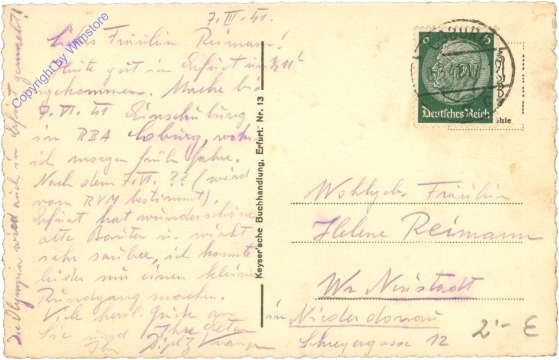 7. III. 41
Liebes Fräulein Reimann!
Heute gut in Erfurt um
angekommen. Mache bis
7. VI. 41 Einschulung
in RBA Coburg, wohin
ich morgen früh fahre.
Nach dem 7. VI. ?? (wird
vom RVM bestimmt).
Erfurt hat wunderschöne
alte Bauten u. wirkt
sehr sauber, ich konnte
leider nur einen kleinen
Rundgang machen.
Viele herzl. Grüße an
Sie und Ihre
Ihr
Die wird auch in Erfurt gemacht!
Copyright by Wimstore
Keyser'sche Buchhandlung, Erfurt: Nr. 13
6 6
Deutsches Reich
Wohlgeb. Fräulein
Helene Reimann
Wr. Neustadt
in Niederdonau
12
2'- E